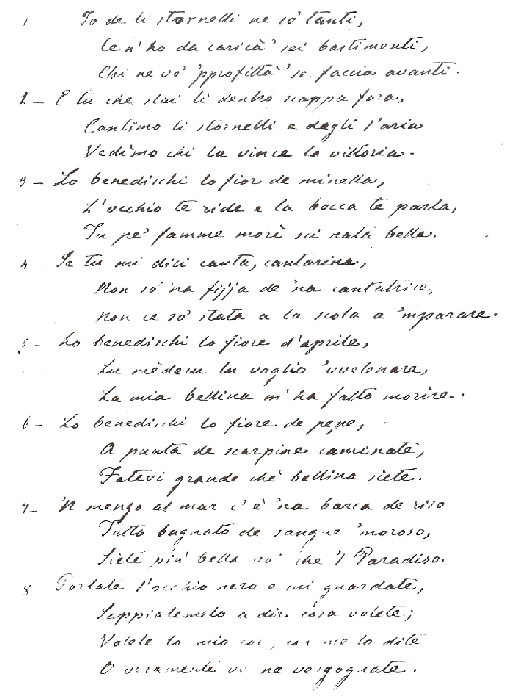 1 Io de li stornelli ne sò tanti,
Ce n'ho da caricà sei bastimenti,
Chi ne vò 'pprofittà se faccia avanti.
2 – E tu che stai lì dentro scappa fora,
Cantimo li stornelli e dagli l'aria
Vedimo chi la vince la vittoria.
3 – Lo benedischi lo fior de mirella,
L'occhio te ride e la bocca te parla,
Tu pe' famme morì sei natà bella.
4 Se tu mi dici canta, cantarina,
Non sò 'na fijja de 'na cantatrice,
Non ce sò stata a la scola a 'mparare.
5 – Lo benedischi lo fiore d'aprile,
Lu mèdecu lu voglio 'nvelenare,
La mia bellina m'ha fatto morire.
6 – Lo benedischi lo fiore de pepe,
A punta de scarpine caminate,
Fatevi grande chè bellina siete.
7 – 'N menzo al mar c'è 'na barca de riso
Tutto bagnato de sangue 'moroso,
Siete più bella vo' che 'l Paradiso.
8 Portate l'occhio nero e mi guardate,
Sappiatemelo a dir cosa volete;
Volete la mia cor, me lo dite
O veramente ve ne vergognate.